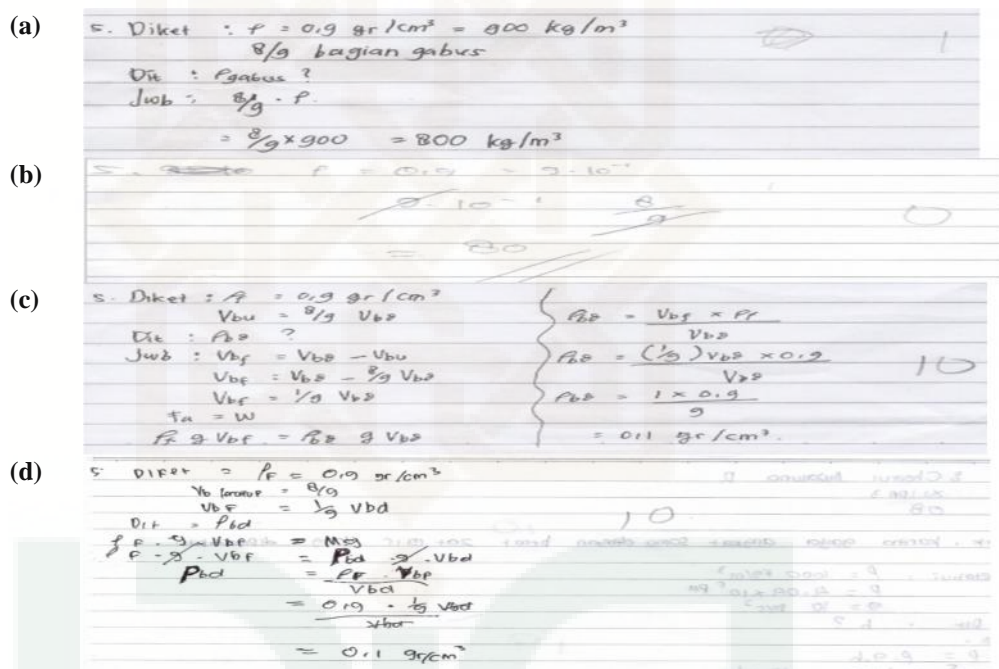 (a)
5. Diket : ρ = 0,9 gr/cm³ = 900 kg/m³
8/9 bagian gabus
Dit : ρgabus ?
Jwb : 8/9 . ρ.
= 8/9 x 900 = 800 kg/m³
1
(b)
5. ρ = 0,9 = 9 . 10⁻¹
9 . 10⁻¹ 8/9
= 80
0
(c)
5. Diket : ρf = 0,9 gr/cm³
Vbu = 8/9 Vbd
Dit : ρbd ?
Jwb : Vbf = Vbd - Vbu
Vbf = Vbd - 8/9 Vbd
Vbf = 1/9 Vbd
Fa = W
ρf g Vbf = ρbd g Vbd
ρbd = Vbf x ρf / Vbd
ρbd = (1/9) Vbd x 0,9 / Vbd
ρbd = 1 x 0,9 / 9
= 0,1 gr/cm³.
10
(d)
5 Diket = ρF = 0,9 gr/cm³
= 8/9
VbF = 1/9 Vbd
Dit = ρbd
10
ρF . g . VbF = M.g
ρF . g . VbF = ρbd . g . Vbd
ρbd = ρF . VbF / Vbd
= 0,9 . 1/9 Vbd / Vbd
= 0,1 gr/cm³